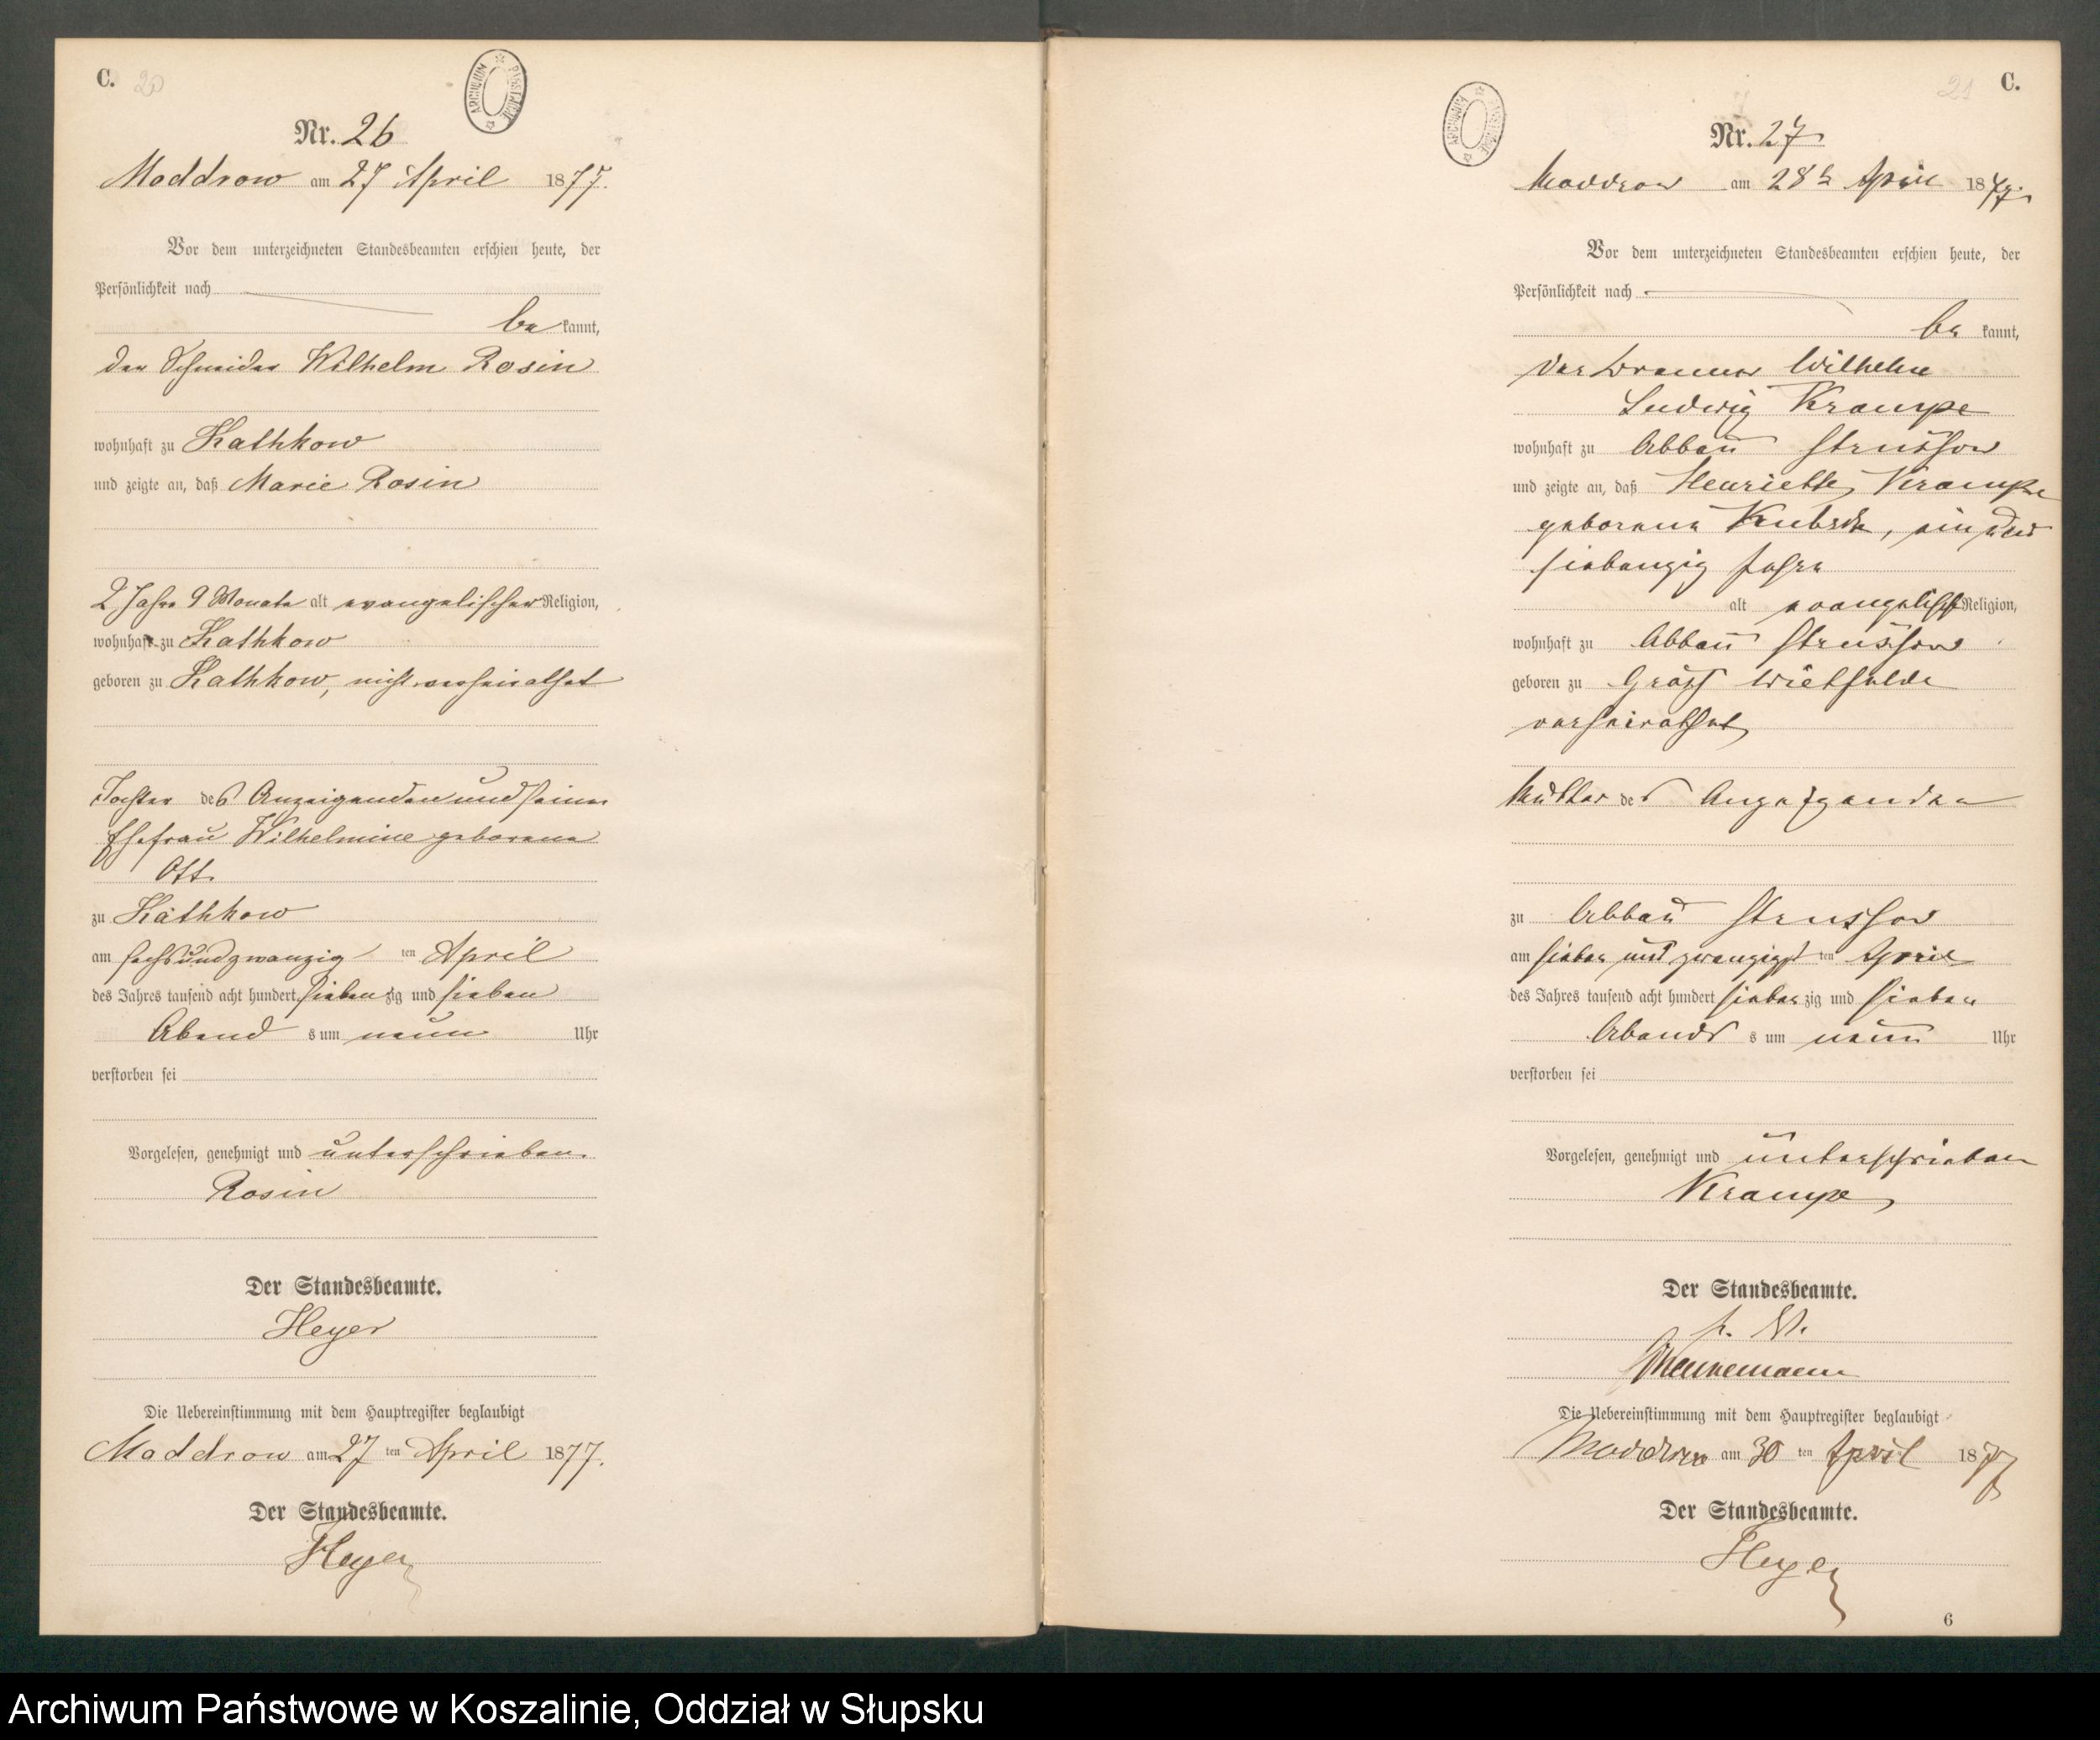 C. 20
ARCHIWUM PAŃSTWOWE
Nr. 26
Moddrow am 27 April 1877.
Vor dem unterzeichneten Standesbeamten erschien heute, der
Persönlichkeit nach
be kannt,
der Schneider Wilhelm Rosin
wohnhaft zu Kathkow
und zeigte an, daß Marie Rosin
2 Jahre 9 Monate alt evangelischer Religion,
wohnhaft zu Kathkow
geboren zu Kathkow, nicht verheirathet
Tochter des Anzeigenden und seiner
Ehefrau Wilhelmine geborene
Ott.
zu Kathkow
am sechsundzwanzig ten April
des Jahres tausend acht hundert siebenzig und sieben
Abend s um neun Uhr
verstorben sei
Vorgelesen, genehmigt und unterschrieben.
Rosin
Der Standesbeamte.
Heyer
Die Uebereinstimmung mit dem Hauptregister beglaubigt
Moddrow am 27 ten April 1877.
Der Standesbeamte.
Heyer
21 C.
ARCHIWUM PAŃSTWOWE
Nr. 27
Moddrow am 28 April 1877.
Vor dem unterzeichneten Standesbeamten erschien heute, der
Persönlichkeit nach
be kannt,
der Wilhelm
Ludwig Krampe
wohnhaft zu Abbau Strussow
und zeigte an, daß Henriette Krampe
geborene, ein und
siebenzig Jahre
alt evangelisch Religion,
wohnhaft zu Abbau Strussow
geboren zu Gross
verheirathet
Mutter des Angezgenden
zu Abbau Strussow
am sieben und zwanzigst ten April
des Jahres tausend acht hundert sieben zig und sieben
Abends s um neun Uhr
verstorben sei
Vorgelesen, genehmigt und unterschrieben
Krampe
Der Standesbeamte.
Die Uebereinstimmung mit dem Hauptregister beglaubigt
Moddrow am 30 ten April 1877
Der Standesbeamte.
Heyer
6
Archiwum Państwowe w Koszalinie, Oddział w Słupsku